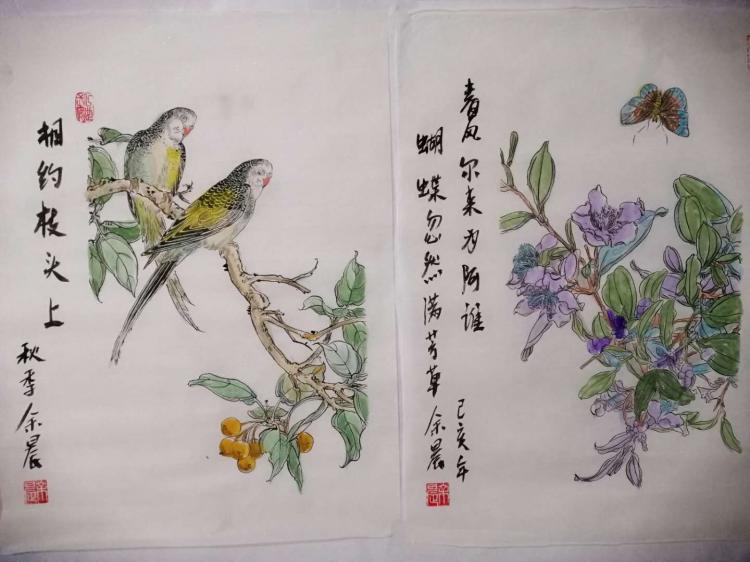 相约枝头上
秋季余晨
春风尔来为阿谁
蝴蝶忽然满芳草余晨
己亥年